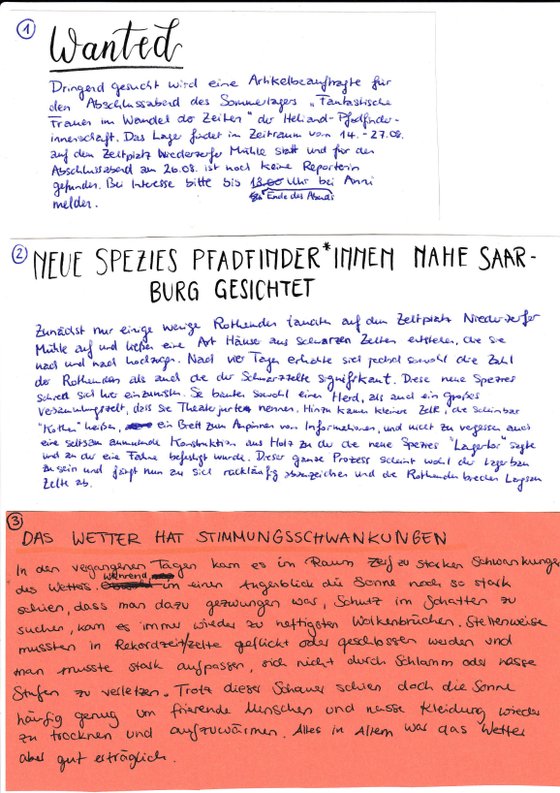 1
Wanted
Dringend gesucht wird eine Artikelbeauftragte für
den Abschlussabend des Sommerlagers „Fantastische
Frauen im Wandel der Zeiten" der Heliand-Pfadfinder-
innenschaft. Das Lager findet im Zeitraum vom 14.-27.08.
auf dem Zeltplatz Niederzerfer Mühle statt und für den
Abschlussabend am 26.08. ist noch keine Reporterin
gefunden. Bei Interesse bitte bis 13.00 Uhr bei Anni
Ende des Abends
melden.
2
NEUE SPEZIES PFADFINDER*INNEN NAHE SAAR-
BURG GESICHTET
Zunächst nur einige wenige Rothemden tauchten auf dem Zeltplatz Niederzerfer
Mühle auf und ließen eine Art Häuse aus schwarzen Zelten entstehen, die sie
nach und nach hochzogen. Nach vier Tagen erhöhte sich jedoch sowohl die Zahl
der Rothemden als auch die der Schwarzzelte signifikant. Diese neue Spezies
schien sich hier einzunisten. Sie bauten sowohl einen Herd, als auch ein großes
Versammlungszelt, dass sie Theaterjurte nennen. Hinzu kamen kleinere Zelte, die scheinbar
"Kothen" heißen, ein Brett zum Anpinnen von Informationen, und nicht zu vergessen auch
eine seltsam anmutende Konstruktion aus Holz zu der die neue Spezies "Lagertor" sagte
und an der eine Fahne befestigt wurde. Dieser ganze Prozess scheint wohl der Lagerbau
zu sein und fängt nun an sich rückläufig abzuzeichnen und die Rothemden brechen langsam
Zelte ab.
3
DAS WETTER HAT STIMMUNGSSCHWANKUNGEN
In den vergangenen Tagen kam es im Raum Zerf zu starken Schwankungen
während
des Wetters. im einen Augenblick die Sonne noch so stark
schien, dass man dazu gezwungen war, Schutz im Schatten zu
suchen, kam es immer wieder zu heftigsten Wolkenbrüchen. Stellenweise
mussten in Rekordzeit Zelte geflickt oder geschlossen werden und
man musste stark aufpassen, sich nicht durch Schlamm oder nasse
Stufen zu verletzen. Trotz dieser Schauer schien doch die Sonne
häufig genug um frierende Menschen und nasse Kleidung wieder
zu trocknen und aufzuwärmen. Alles in Allem war das Wetter
aber gut erträglich.